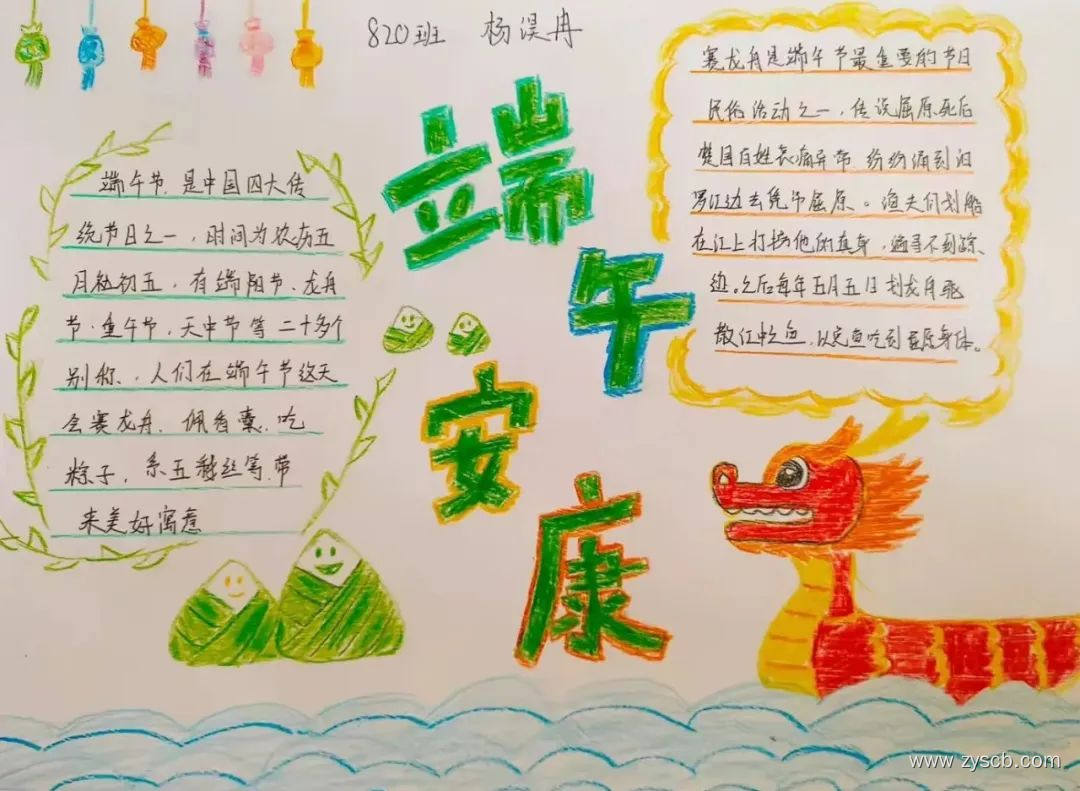 820班 杨淏冉
端午
安康
端午节,是中国四大传
统节日之一,时间为农历五
月初五,有端阳节、龙舟
节、重午节,天中节等二十多个
别称、人们在端午节这天
会赛龙舟、佩香囊、吃
粽子,系五彩丝等,带
来美好寓意
赛龙舟是端午节最重要的节日
民俗活动之一,传说屈原死后
楚国百姓哀痛异常,纷纷涌到汨
罗江边去凭吊屈原。渔夫们划船
在江上打捞他的真身,遍寻不到踪
迹。之后每年五月五日划龙舟驱
散江中之鱼,以免鱼吃到屈原身体。
www.zyscb.com